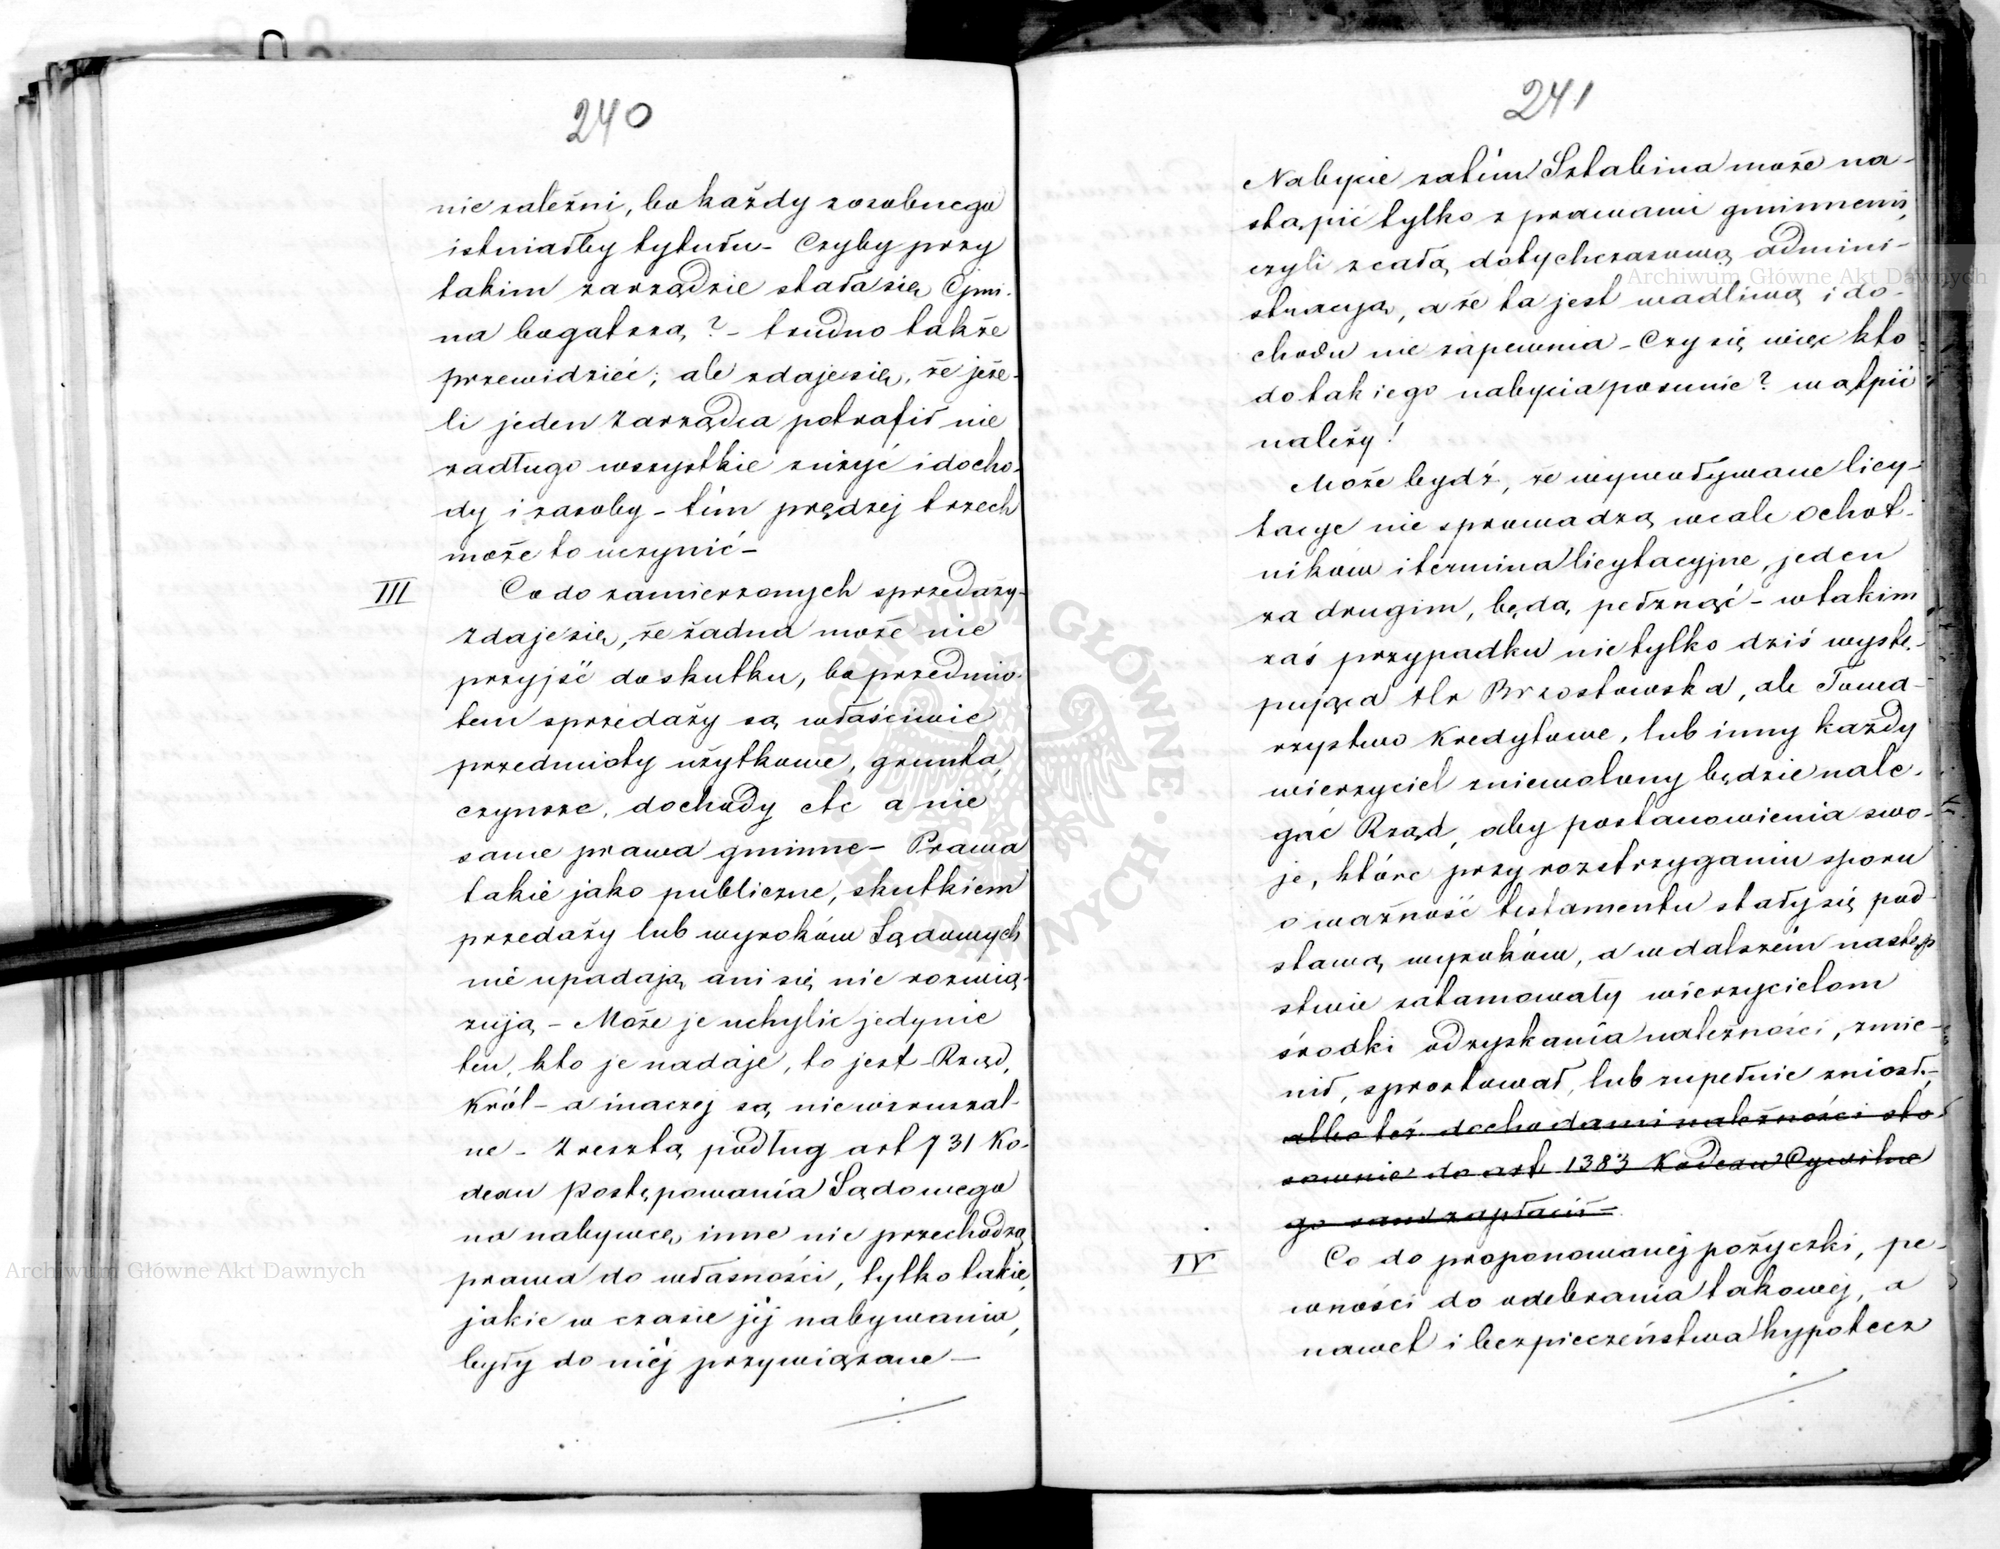 240
niezależni, bo każdy z osobnego
istniałby tytułu – Czyby przy
takim zarządzie stała się Gmi-
na bogatszą? – trudno także
przewidzieć; ale zdaje się, że jeże-
li jeden Zarządca potrafił nie
zadługo wszystkie zużyć i docho-
dy i zasoby – tém prędzej trzech
może to uczynić –
III Co do zamierzonych sprzedaży –
Zdaje się, że żadna może nie
przyjść do skutku, bo przedmio-
tem sprzedaży są właściwie
przedmioty użytkowe, grunta,
czynsze, dochody etc a nie
same prawa gminne – Prawa
takie jako publiczne, skutkiem
przedaży lub wyroków Sądowych
nie upadają ani się nie rozwią-
zują – Może je uchylić jedynie
ten, kto je nadaje, to jest Rząd,
Król – a inaczej są niewzruszal-
ne – Zresztą podług art 731 Ko-
dexu Postępowania Sądowego
na nabywcę inne nie przechodzą
prawa do własności, tylko takie,
jakie w czasie jéj nabywania,
były do niéj przywiązane –
241
Nabycie zatém Sztabina może na-
stąpić tylko z prawami gminnemi,
czyli z całą dotychczasową admini-
stracyą, a że ta jest wadliwą i do-
chodu nie zapewnia – Czy się więc kto
do takiego nabycia posunie? wątpić
należy!
Może bydź, że wywoływane licy-
tacye nie sprowadzą wcale ochot-
ników i termina licytacyjne, jeden
za drugim, będą pełznąć – w takim
zaś przypadku nie tylko dziś wystę-
pująca Hr Brzostowska, ale Towa-
rzystwo Kredytowe, lub inny każdy
wierzyciel zniewolony będzie nale-
gać Rząd, aby postanowienia swo-
je, które przy rozstrzyganiu sporu
o ważność testamentu stały się pod-
stawą wyroków, a w dalszém następ
stwie zatamowały wierzycielom
środki odzyskania należności, zmie-
nił, sprostował, lub zupełnie zniosł –
albo też dochodami należności sto-
sownie do art 1383 Kodexu Cywilne
go sam zapłacił –
IV Co do proponowanéj pożyczki, pe-
wności do odebrania takowéj, a
nawet i bezpieczeństwa hypotecz
Archiwum Główne Akt Dawnych
Archiwum Główne Akt Dawnych
ARCHIWUM GŁÓWNE AKT DAWNYCH